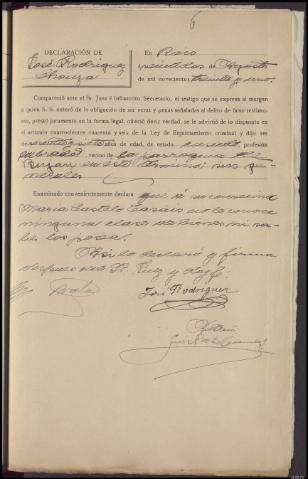 6
DECLARACIÓN DE
José Rodriguez
En
veintidos de Agosto
de mil novecientos treinta y uno.
Compareció ante el Sr. Juez é infrascrito Secretario, el testigo que se expresa al margen
a quien S. S. enteró de la obligación de ser veraz y penas señaladas al delito de falso testimo-
nio, prestó juramento en la forma legal, ofreció decir verdad, se le advirtió de lo dispuesto en
el artículo cuatrocientos cuarenta y seis de la Ley de Enjuiciamiento criminal y dijo ser
de años de edad, de estado casado, profesión
labrador, vecino de la parroquia de
en este termino
Examinado convenientemente declara: que á su convecina
Maria Castelo no la conoce
ninguna clase de bienes ni sa-
be los posea.
Asi lo declaró y firma
despues del Sr. Juez y doy fé.
José Rodriguez